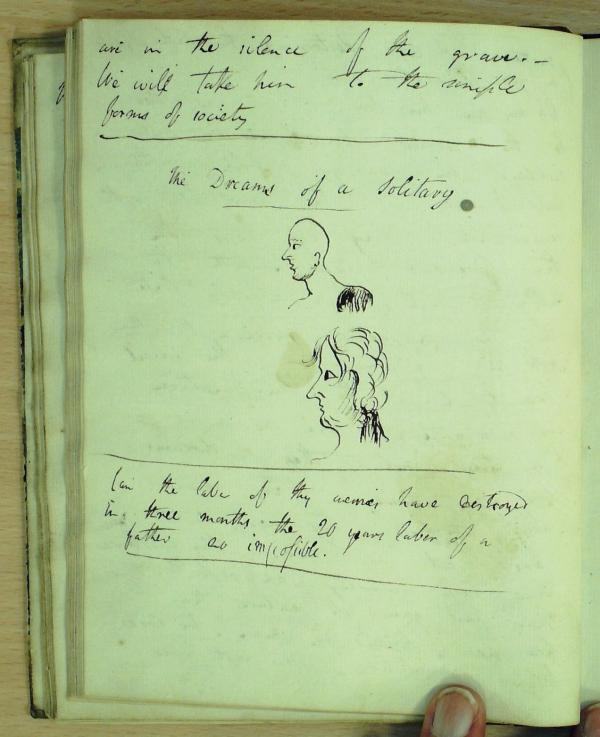 are in the silence of the grave. —
We will take him to the simple
forms of society
The Dreams of a Solitary
Can the labor of thy enemies have destroyed
in three months the 20 years labor of a
father so impossible.